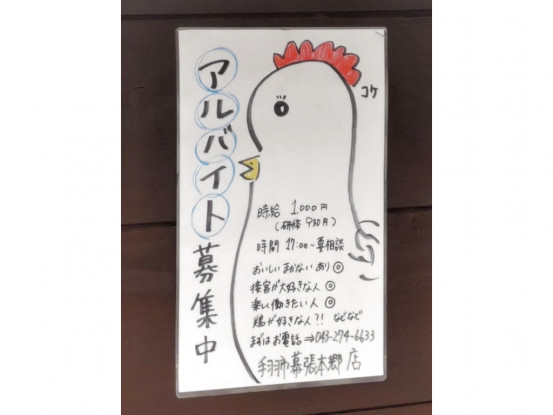 アルバイト募集中
コケ
時給 1,000円
(研修 930円)
時間 17:00~要相談
おいしいまかないあり◎
接客が大好きな人◎
楽しく働きたい人◎
鶏が好きな人?! などなど
まずはお電話⇒043-274-6633
手羽市幕張本郷店